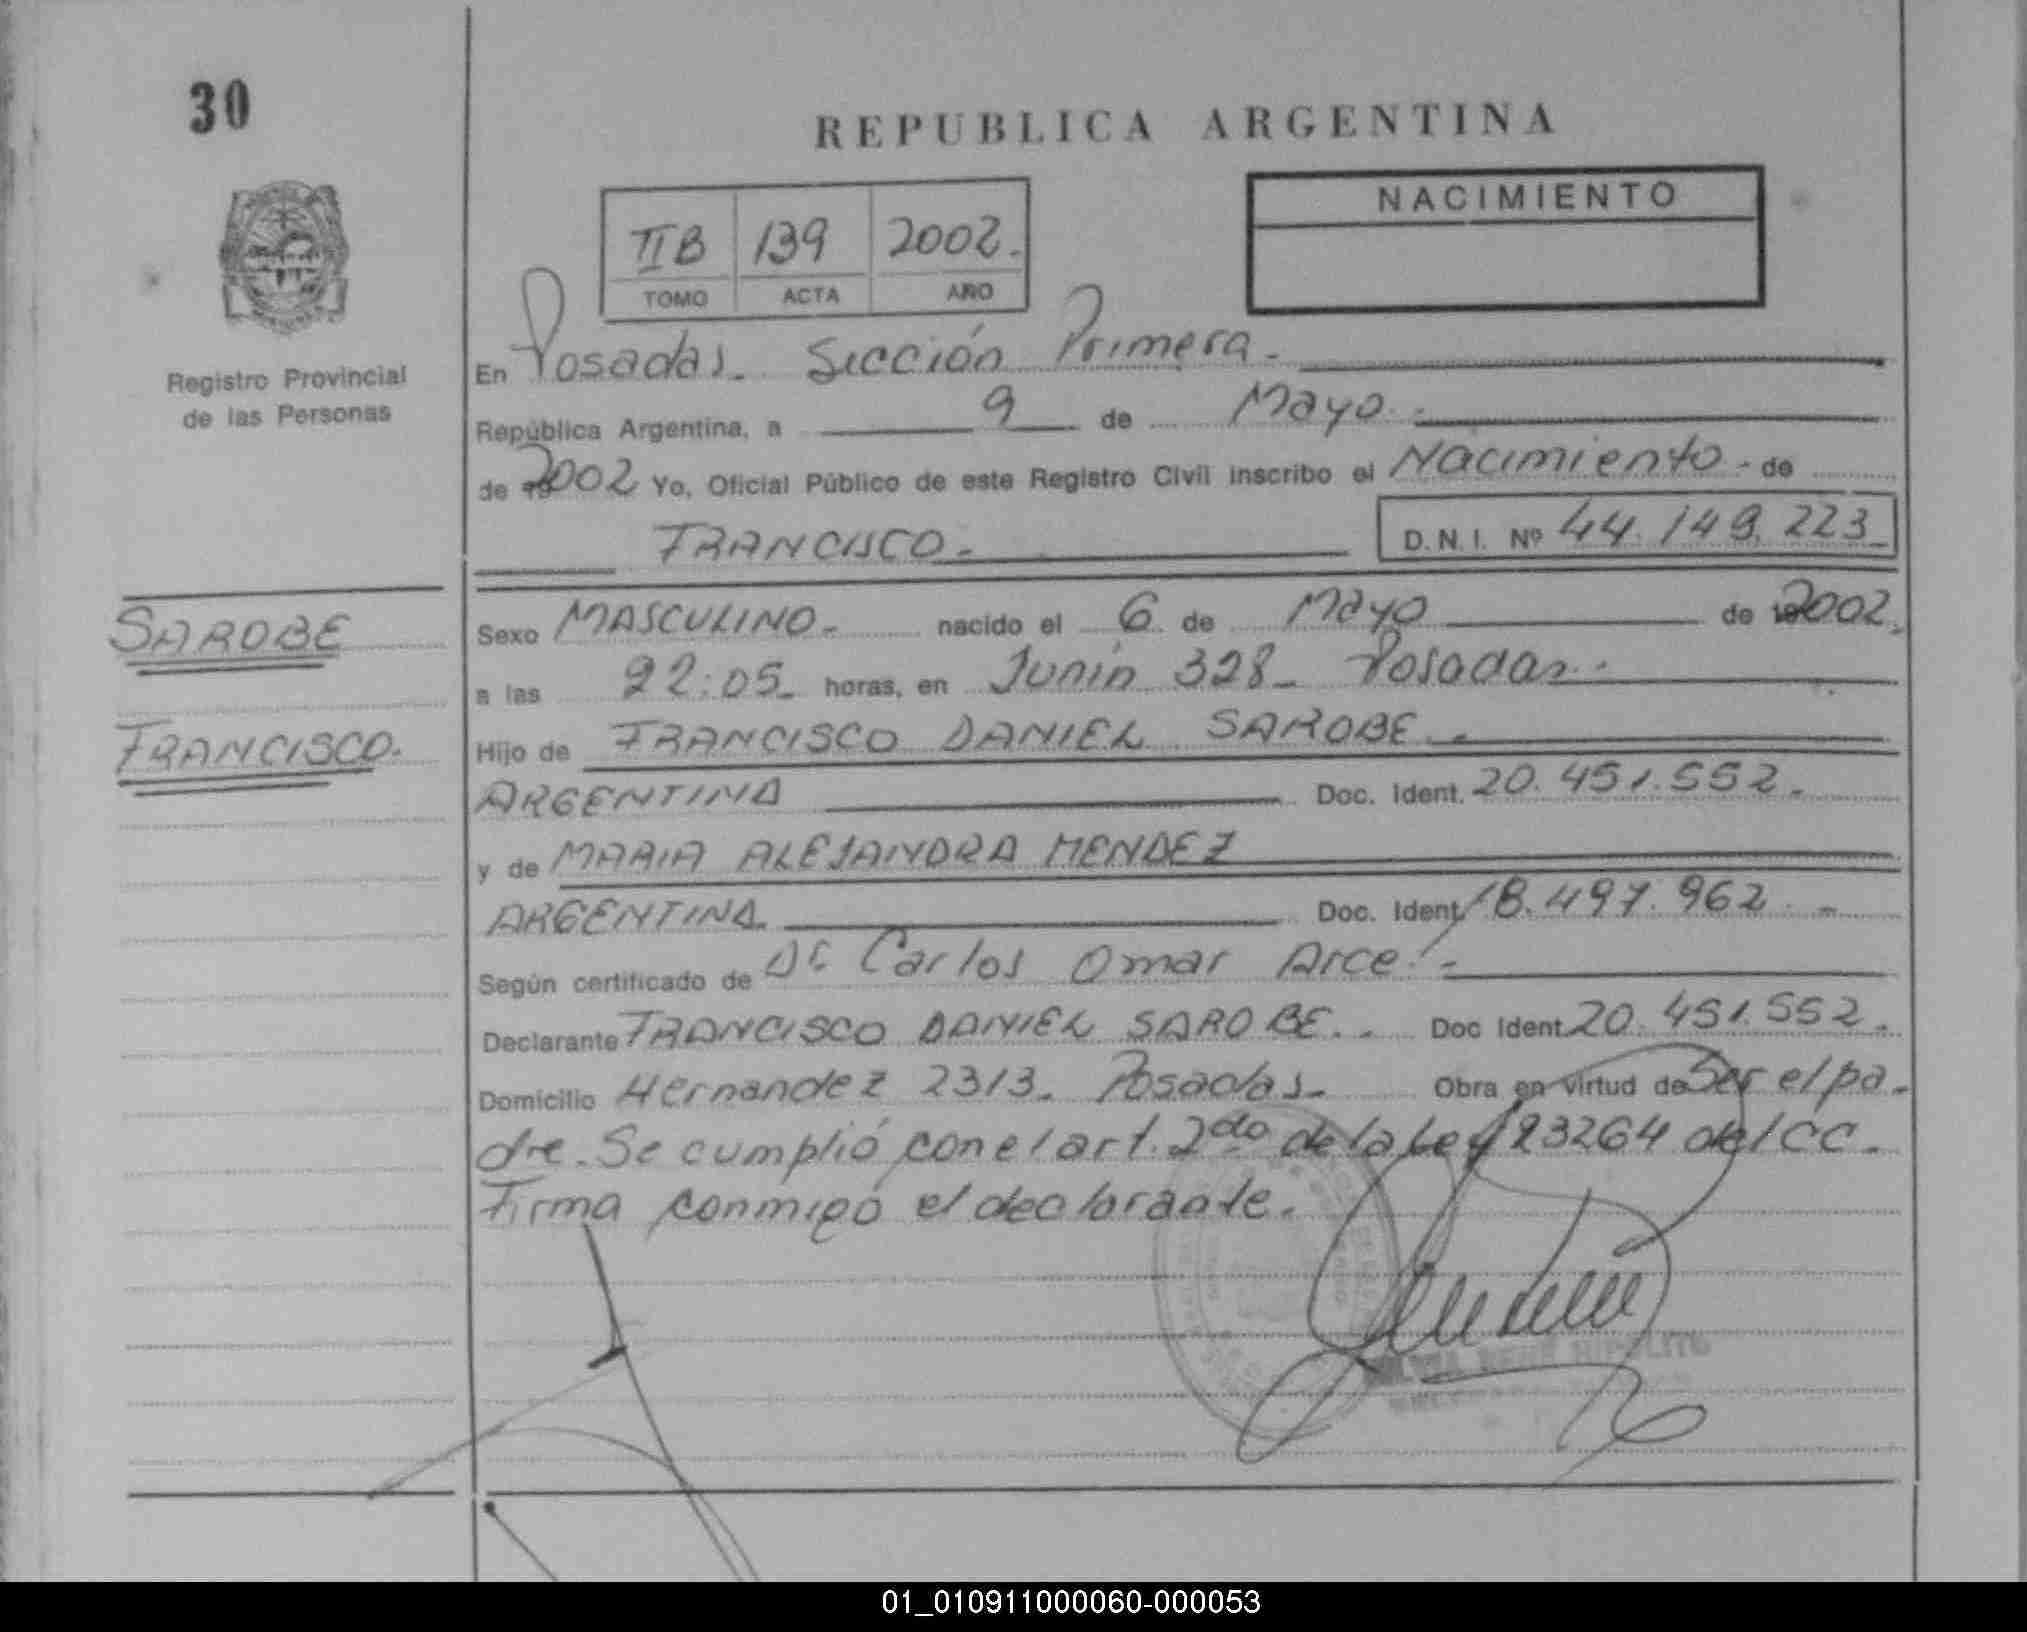 30
REPUBLICA ARGENTINA
NACIMIENTO
IIB 139 2002.
TOMO ACTA AÑO
Registro Provincial
de las Personas
En Posadas. Sección Primera.
República Argentina, a 9 de Mayo.
de 2002 Yo, Oficial Público de este Registro Civil inscribo el Nacimiento - de
FRANCISCO. D.N.I. Nº 44.149.223
SAROBE
FRANCISCO.
Sexo MASCULINO. nacido el 6 de Mayo de 2002.
a las 22:05 horas, en Junín 328 - Posadas.
Hijo de FRANCISCO DANIEL SAROBE.
ARGENTINA Doc. Ident. 20.451.552.
y de MARIA ALEJANDRA MENDEZ
ARGENTINA. Doc. Ident. 18.497.962. -
Según certificado de Dr Carlos Omar Arce. -
Declarante FRANCISCO DANIEL SAROBE. Doc Ident. 20.451.552.
Domicilio Hernandez 2313. Posadas. Obra en virtud de Ser el pa-
dre. Se cumplió con el art. 2do de la Ley 23264 del CC.
Firma conmigo el declarante.
RENE HIPOLITO
01_010911000060-000053